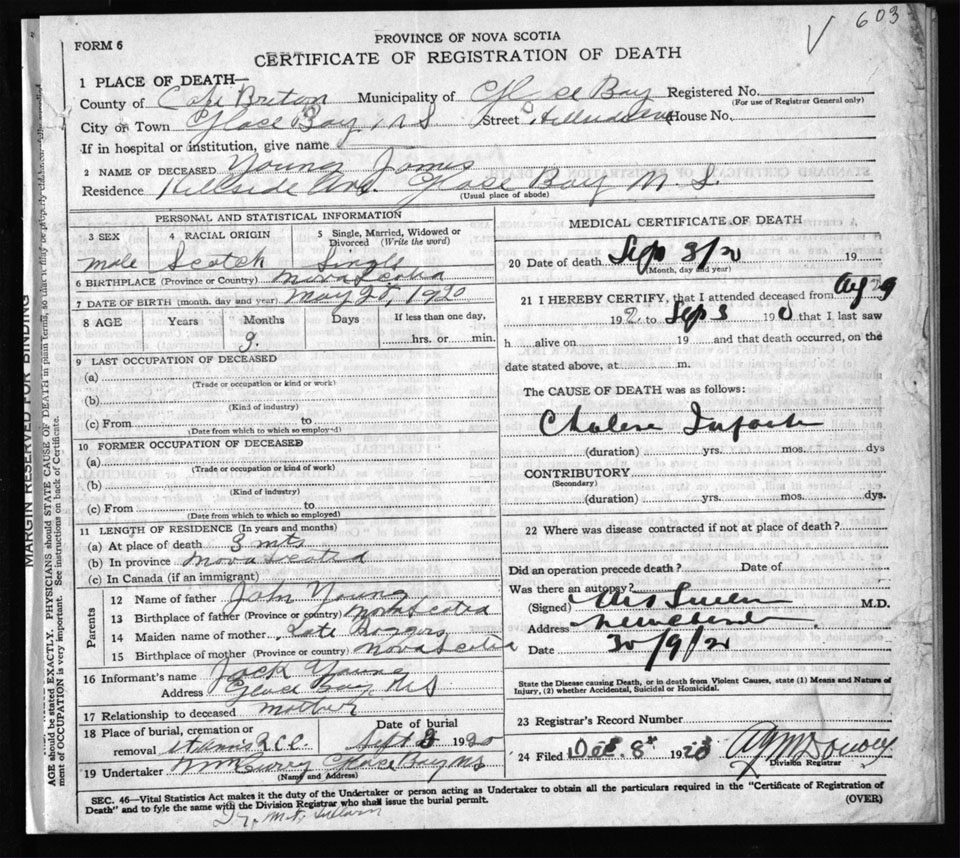 603
V
FORM 6
PROVINCE OF NOVA SCOTIA
CERTIFICATE OF REGISTRATION OF DEATH
1 PLACE OF DEATH—
County of Cape Breton Municipality of Glace Bay Registered No.
(For use of Registrar General only)
City or Town Glace Bay, NS Street House No.
If in hospital or institution, give name
2 NAME OF DECEASED Young James
Residence Hillside Ave. Glace Bay N. S.
(Usual place of abode)
PERSONAL AND STATISTICAL INFORMATION
3 SEX 4 RACIAL ORIGIN 5 Single, Married, Widowed or Divorced (Write the word)
Male Scotch Single
6 BIRTHPLACE (Province or Country) Nova Scotia
7 DATE OF BIRTH (month, day and year) May 1920
8 AGE Years Months Days If less than one day,
3. hrs. or min.
9 LAST OCCUPATION OF DECEASED
(a)
(Trade or occupation or kind or work)
(b)
(Kind of industry)
(c) From to
(Date from which to which so employed)
10 FORMER OCCUPATION OF DECEASED
(a)
(Trade or occupation or kind of work)
(b)
(Kind of industry)
(c) From to
(Date from which to which so employed)
11 LENGTH OF RESIDENCE (In years and months)
(a) At place of death 3 mts
(b) In province Nova Scotia
(c) In Canada (if an immigrant)
Parents
12 Name of father John Young
13 Birthplace of father (Province or country) Nova Scotia
14 Maiden name of mother Boggers
15 Birthplace of mother (Province or country) Nova Scotia
16 Informant's name Jack Young
Address Glace Bay, NS
17 Relationship to deceased
18 Place of burial, cremation or removal Date of burial
R.C.C. Sept 3 1920
19 Undertaker Wm Curry Glace Bay NS
(Name and Address)
MEDICAL CERTIFICATE OF DEATH
20 Date of death Sep 3/20 19
(Month, day and year)
21 I HEREBY CERTIFY, that I attended deceased from Aug 29
192 to Sep 3 19 0 that I last saw
h alive on 19 and that death occurred, on the
date stated above, at m.
The CAUSE OF DEATH was as follows:
Cholera Infant
(duration) yrs. mos. dys
CONTRIBUTORY
(Secondary)
(duration) yrs. mos. dys.
22 Where was disease contracted if not at place of death?
Did an operation precede death? Date of
Was there an autopsy?
(Signed) M.D.
Address
Date 30/9/20
State the Disease causing Death, or in death from Violent Causes, state (1) Means and Nature of
Injury, (2) whether Accidental, Suicidal or Homicidal.
23 Registrar's Record Number
24 Filed 8th 1920
Division Registrar
SEC. 46—Vital Statistics Act makes it the duty of the Undertaker or person acting as Undertaker to obtain all the particulars required in the "Certificate of Registration of
Death" and to fyle the same with the Division Registrar who shall issue the burial permit. (OVER)
MARGIN RESERVED FOR BINDING
AGE should be stated EXACTLY. PHYSICIANS should STATE CAUSE OF DEATH in plain terms, so that it may be properly classified.
ment of OCCUPATION is very important. See instructions on back of Certificate.